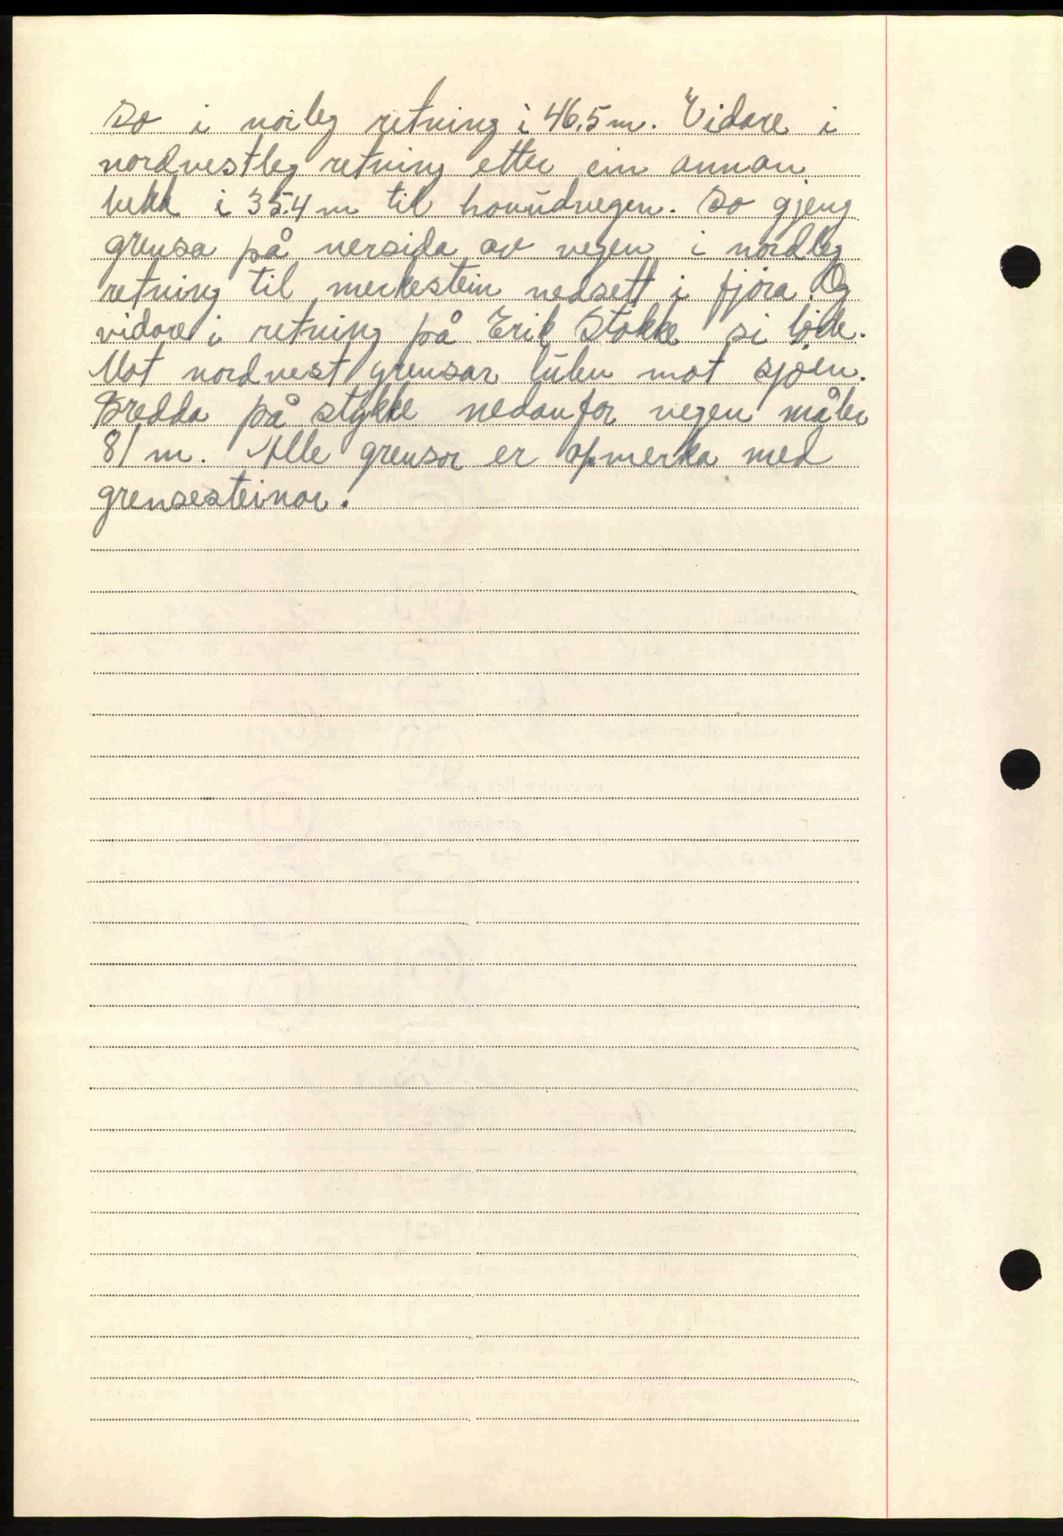 So i norleg retning i 46.5 m. Vidare i
nordvestleg retning etter ein annan
bekk i 35.4 m til hovudvegen. So gjeng
grensa på nersida av vegen i nordleg
retning til merkestein nedsett i fjøra. Og
vidare i retning på Erik Stokke si løde.
Mot nordvest grensar luten mot sjøen.
Bredda på stykke nedanfor vegen måler
81 m. Alle grensor er opmerka med
grensesteinar.